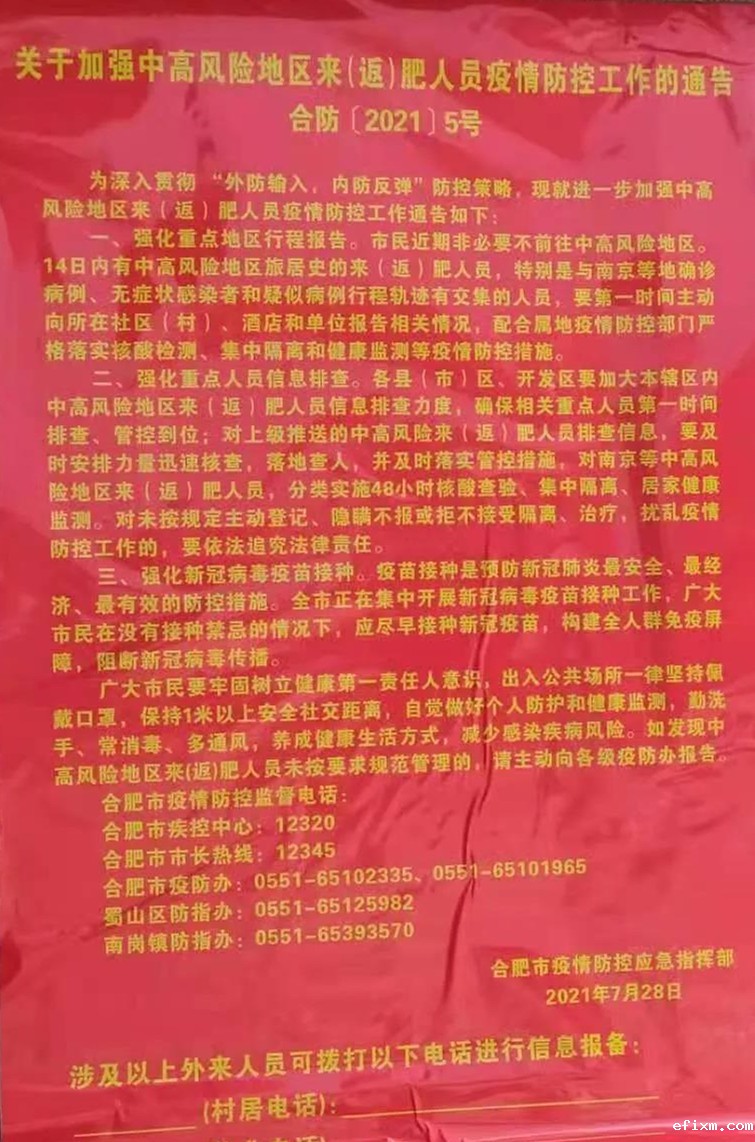 关于加强中高风险地区来(返)肥人员疫情防控工作的通告
合防〔2021〕5号
为深入贯彻“外防输入，内防反弹”防控策略，现就进一步加强中高
风险地区来（返）肥人员疫情防控工作通告如下：
一、强化重点地区行程报告。市民近期非必要不前往中高风险地区。
14日内有中高风险地区旅居史的来（返）肥人员，特别是与南京等地确诊
病例、无症状感染者和疑似病例行程轨迹有交集的人员，要第一时间主动
向所在社区（村）、酒店和单位报告相关情况，配合属地疫情防控部门严
格落实核酸检测、集中隔离和健康监测等疫情防控措施。
二、强化重点人员信息排查。各县（市）区、开发区要加大本辖区内
中高风险地区来（返）肥人员信息排查力度，确保相关重点人员第一时间
排查、管控到位；对上级推送的中高风险来（返）肥人员排查信息，要及
时安排力量迅速核查，落地查人，并及时落实管控措施，对南京等中高风
险地区来（返）肥人员，分类实施48小时核酸查验、集中隔离、居家健康
监测。对未按规定主动登记、隐瞒不报或拒不接受隔离、治疗，扰乱疫情
防控工作的，要依法追究法律责任。
三、强化新冠病毒疫苗接种。疫苗接种是预防新冠肺炎最安全、最经
济、最有效的防控措施。全市正在集中开展新冠病毒疫苗接种工作，广大
市民在没有接种禁忌的情况下，应尽早接种新冠疫苗，构建全人群免疫屏
障，阻断新冠病毒传播。
广大市民要牢固树立健康第一责任人意识，出入公共场所一律坚持佩
戴口罩，保持1米以上安全社交距离，自觉做好个人防护和健康监测，勤洗
手、常消毒、多通风，养成健康生活方式，减少感染疾病风险。如发现中
高风险地区来(返)肥人员未按要求规范管理的，请主动向各级疫防办报告。
合肥市疫情防控监督电话：
合肥市疾控中心：12320
合肥市市长热线：12345
合肥市疫防办：0551-65102335、0551-65101965
蜀山区防指办：0551-65125982
南岗镇防指办：0551-65393570
合肥市疫情防控应急指挥部
2021年7月28日
涉及以上外来人员可拨打以下电话进行信息报备：
(村居电话)：
efixm.com